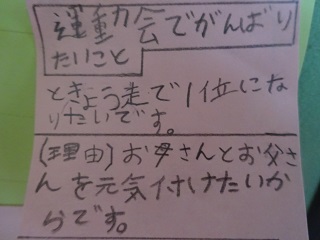 運動会でがんばり
たいこと
ときょう走で1位にな
りたいです。
(理由)お母さんとお父さ
んを元気付けたいか
らです。